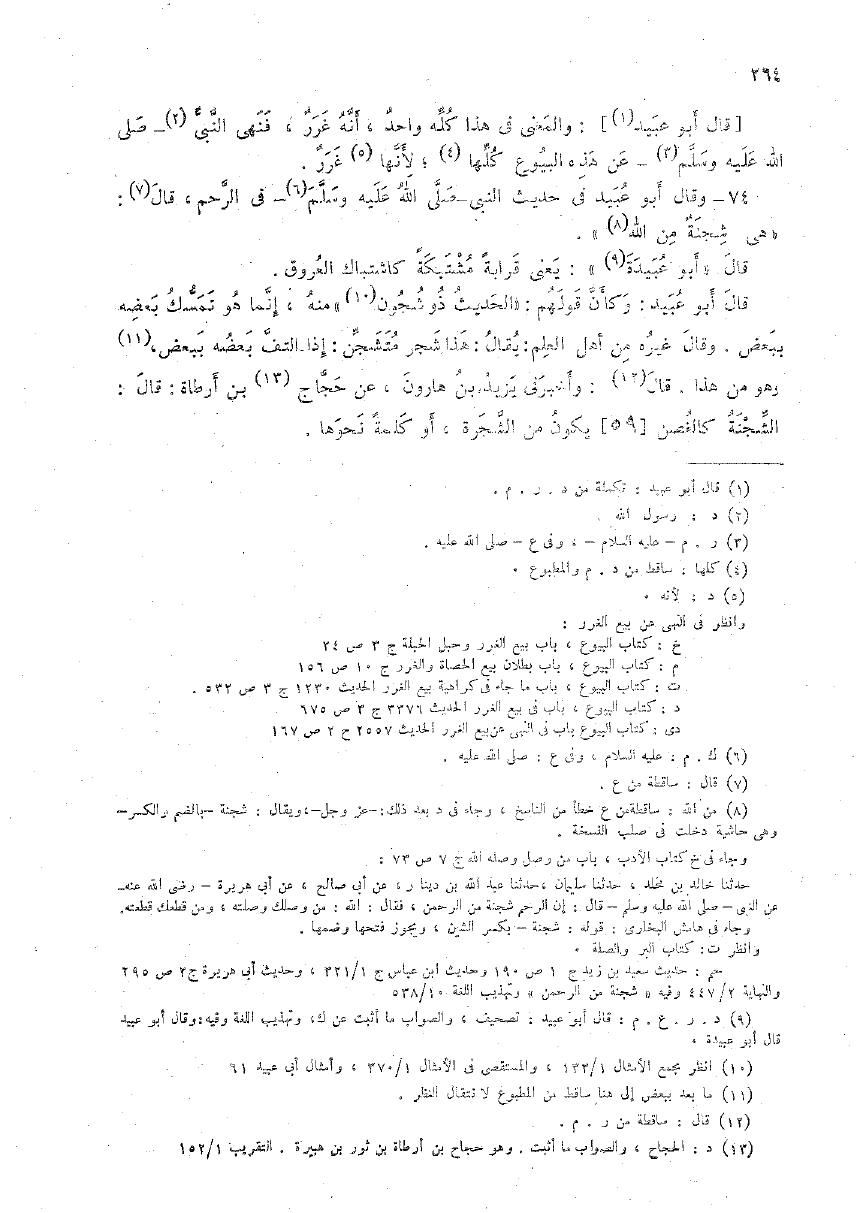 ٢٦٤
[ قال أَبو عبَيد(١) ] : والمَعْنى فى هذا كُلِّه واحدٌ ، أَنَّهُ غَرَرٌ ، فَنَهى النَّبىُّ (٢)ـ صَلى
الله عَلَيه وسَلَّم(٣) ـ عَن هَذِه البُيُوع كُلِّها (٤) ؛ لِأَنَّها (٥) غَرَرٌ .
٧٤ـ وقال أَبو عُبَيد فى حديث النبى ـ صَلَّى اللهُ عَلَيه وسَلَّم(٦)ـ فى الرَّحم ، قالَ(٧) :
« هى شِجنَةٌ مِن الله(٨) » .
قالَ « أَبو عُبَيدَة(٩) » : يَعنى قَرابةً مُشْتَبِكَةً كاشتباك العُروق .
قالَ أَبو عُبَيد : وَكأَنَّ قَولَهُم : «الحَديثُ ذُو شُجُون(١٠) »منهُ ، إِنَّما هُو تَمَسُّكُ بَعضِه
ببَعض . وقالَ غيرُه مِن أهل العِلم : يُقالُ : هَذا شَجر مُتَشَجِّنٌ : إِذا التفَّ بَعضُه بَبعض،(١١)
وهو من هذا . قالَ(١٢) : وأَخبرَنى يَزيدُ بنُ هارونَ ، عن حَجَّاج (١٣) بن أَرطاة : قالَ :
الشِّجْنَةُ كالغُصن [٥٩] يكونُ من الشَّجَرة ، أَو كَلمةً نَحوَها .
(١) قال أبو عبيد : تكملة من د . ر . م .
(٢) د : رسول الله .
(٣) ر . م – عليه السلام – ، وفى ع – صلى الله عليه .
(٤) كلها : ساقط من د . م والمطبوع .
(٥) د : لأنه .
وانظر فى النهى عن بيع الغرر :
خ : كتاب البيوع ، باب بيع الغرر وحبل الحبلة ج ٣ ص ٢٤
م : كتاب البيوع ، باب بطلان بيع الحصاة والغرر ج ١٠ ص ١٥٦
ت : كتاب البيوع ، باب ما جاء فى كراهية بيع الغرر الحديث ١٢٣٠ ج ٣ ص ٥٣٢ .
د : كتاب البيوع ، باب فى بيع الغرر الحديث ٣٣٧٦ ج ٣ ص ٦٧٥
دى : كتاب البيوع باب فى النهى عن بيع الغرر الحديث ٢٥٥٧ ح ٢ ص ١٦٧
(٦) ك . م : عليه السلام ، وفى ع : صلى الله عليه .
(٧) قال : ساقطة من ع .
(٨) من الله : ساقطة من ع خطأ من الناسخ ، وجاء فى د بعد ذلك :–عز وجل–، ويقال : شجنة –بالضم والكسر–
وهى حاشية دخلت فى صلب النسخة .
وجاء فى خ كتاب الأدب ، باب من وصل وصله الله ج ٧ ص ٧٣ :
حدثنا خالد بن مخلد ، حدثنا سليمان ، حدثنا عبد الله بن دينار ، عن أبى صالح ، عن أبى هريرة – رضى الله عنه–
عن النبى – صلى الله عليه وسلم – قال : إن الرحم شجنة من الرحمن ، فقال : الله : من وصلك وصلته ، ومن قطعك قطعته.
وجاء فى هامش البخارى : قوله : شجنة – بكسر الشين ، ويجوز فتحها وضمها .
وانظر ت : كتاب البر والصلة .
حم : حديث سعيد بن زيد ج ١ ص ١٩٠ وحديث ابن عباس ج ٣٢١/١ ، وحديث أبى هريرة ج٢ ص ٢٩٥
والنهاية ٤٤٧/٢ وفيه « شجنة من الرحمن » وتهذيب اللغة ٥٣٨/١٠
(٩) د . ر . ع . م : قال أبو عبيد : تصحيف ، والصواب ما أثبت عن ك، وتهذيب اللغة وفيه :وقال أبو عبيد
قال أبو عبيدة .
(١٠) انظر مجمع الأمثال ١٣٣/١ ، والمستقصى فى الأمثال ٣٧٠/١ ، وأمثال أبى عبيد ٦١
(١١) ما بعد ببعض إلى هنا ساقط من المطبوع لانتقال النظر .
(١٢) قال : ساقطة من ر . م .
(١٣) د : الحجاج ، والصواب ما أثبت . وهو حجاج بن أرطاة بن ثور بن هبيرة . التقريب ١٥٢/١